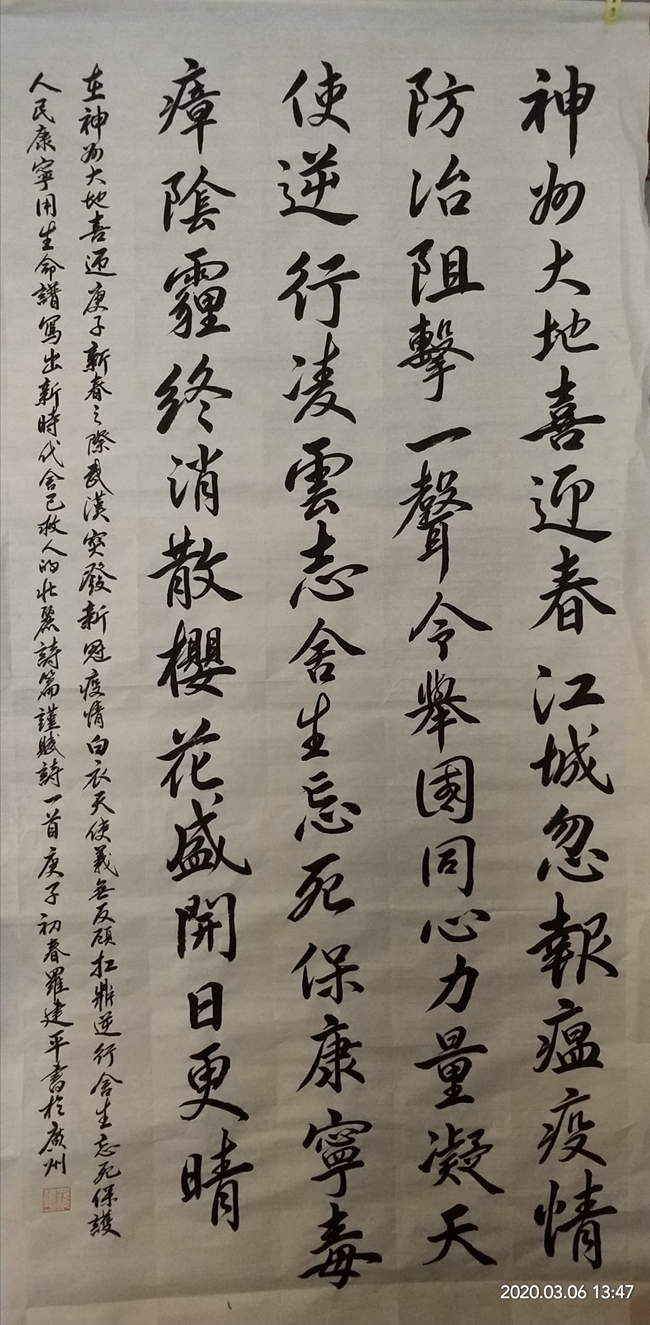 神州大地喜迎春江城忽報瘟疫情
防治阻擊一聲令舉國同心力量凝天
使逆行凌雲志舍生忘死保康寧毒
瘴陰霾終消散櫻花盛開日更晴
在神州大地喜迎庚子新春之際武漢突發新冠疫情白衣天使義無反顧扛鼎逆行舍生忘死保護
人民康寧用生命譜寫出新時代舍己救人的壯麗詩篇謹賦詩一首庚子初春羅建平書於廣州
2020.03.06 13:47